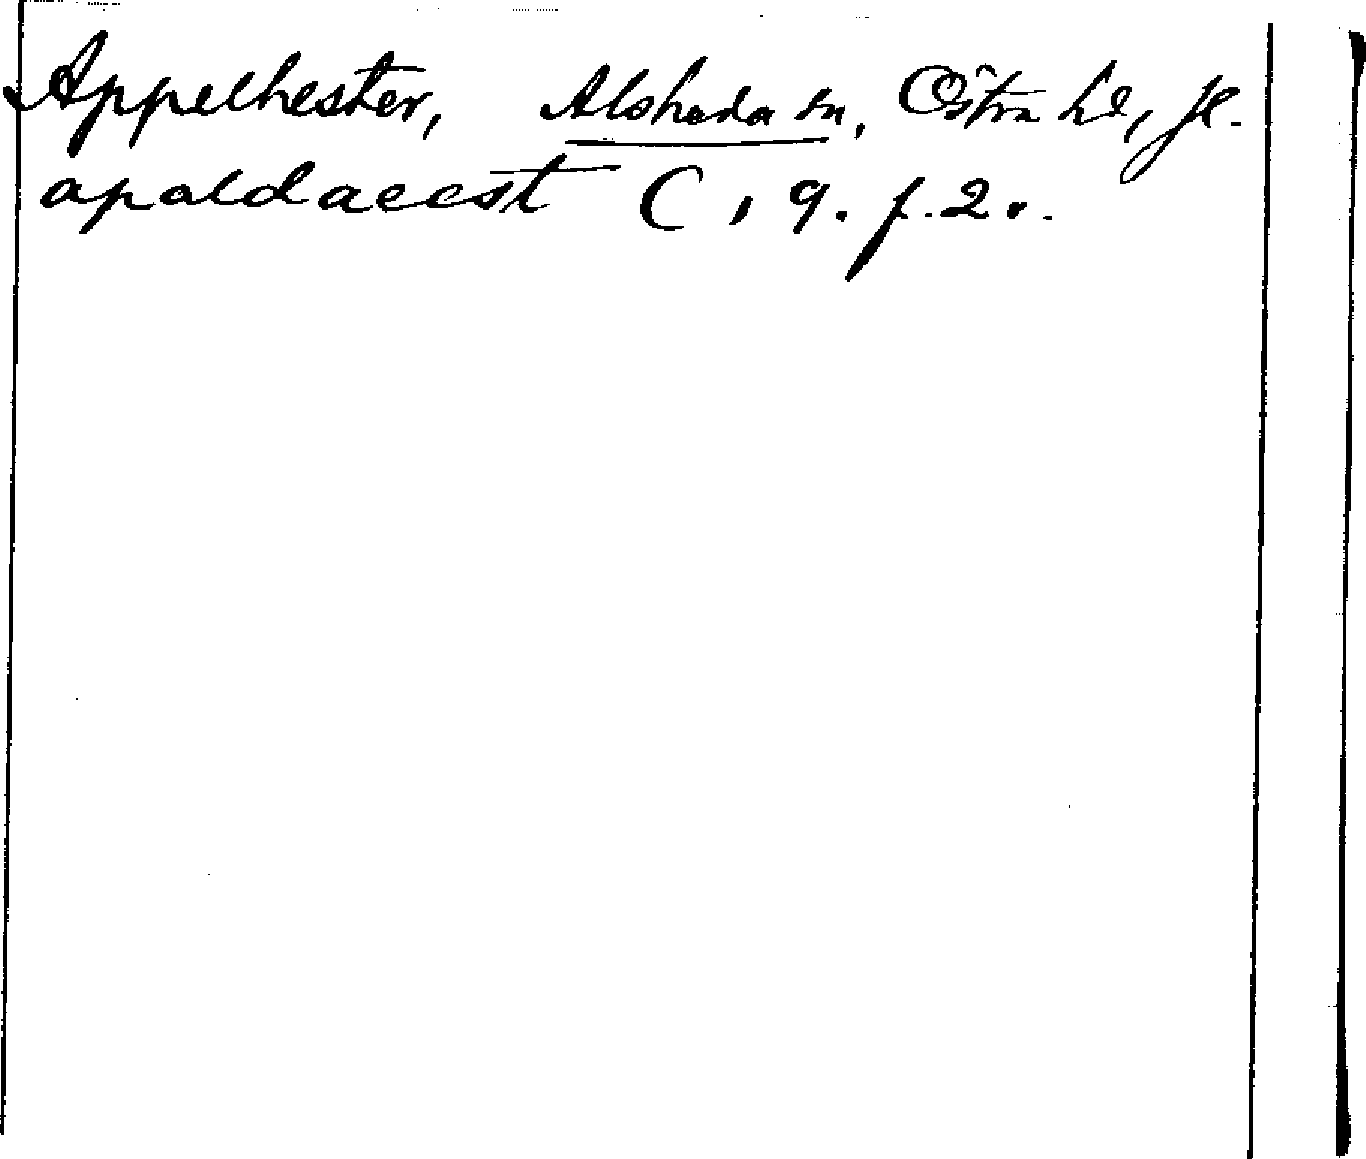 Appelhester, Alsheda sn, Östra hd, Jl.
apaldaeest C, 9. f. 2 v.